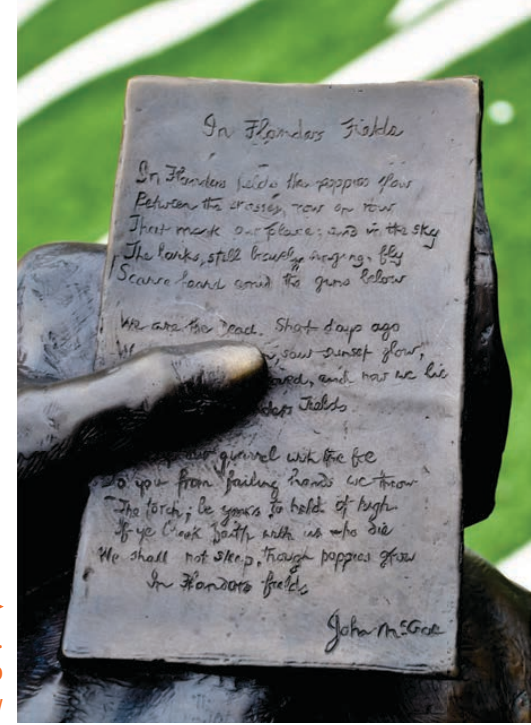 In Flanders Fields
In Flanders fields the poppies blow
Between the crosses, row on row
That mark our place; and in the sky
The larks, still bravely singing, fly
Scarce heard amid the guns below
We are the Dead. Short days ago
saw sunset glow,
and now we lie
Fields
quarrel with the foe
To you from failing hands we throw
The torch; be yours to hold it high
If ye break faith with us who die
We shall not sleep, though poppies grow
In Flanders fields
John McCrae